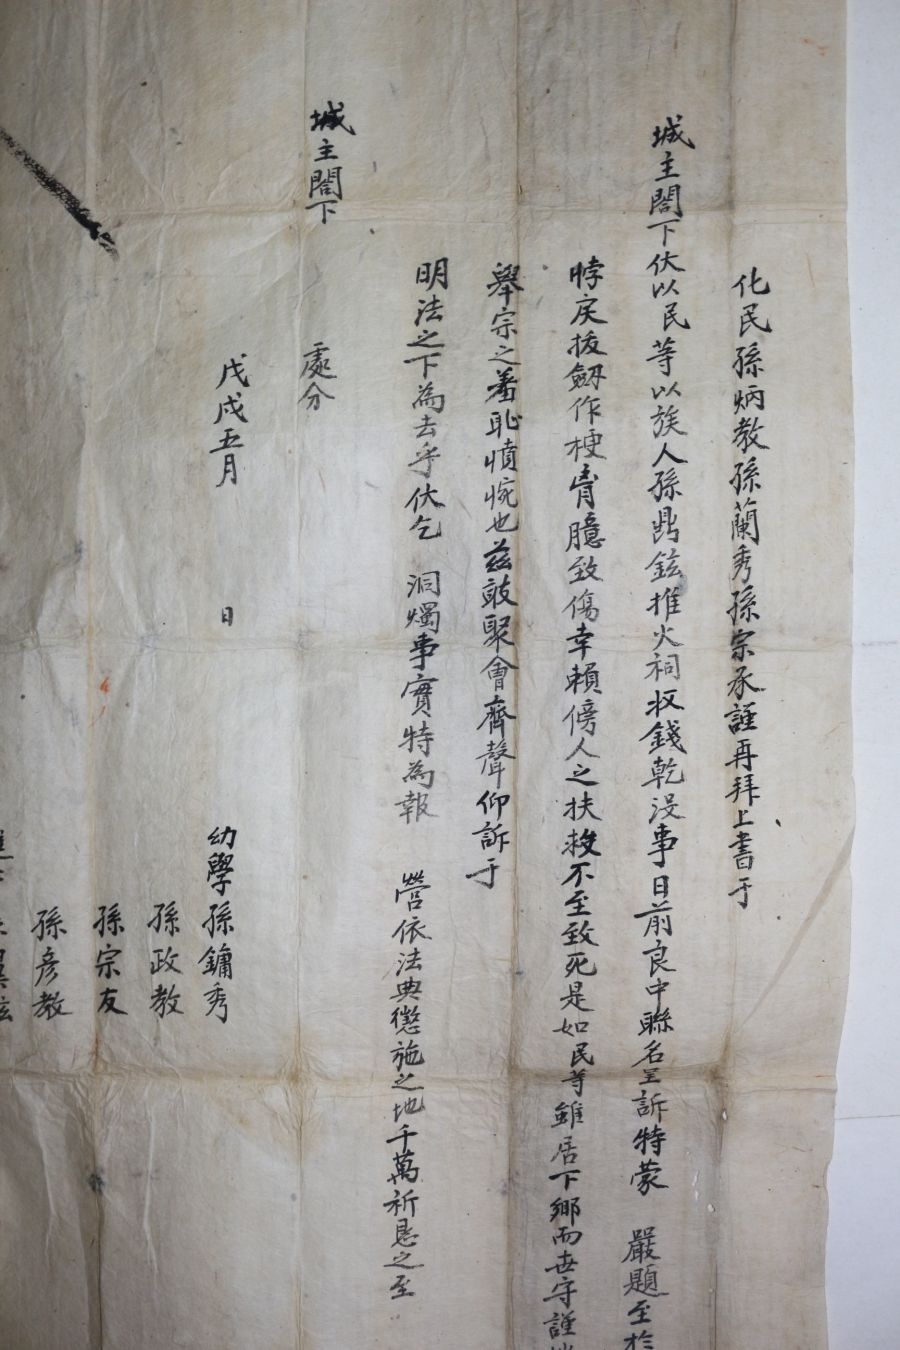 化民孫炳教孫蘭秀孫宗承謹再拜上書于
城主閤下伏以民等以族人孫鼎鉉推火祠収錢乾沒事日前良中聯名呈訴特蒙 嚴題至於
悖戾拔劒作梗胷臆致傷幸賴傍人之扶救不至致死是如民等雖居下鄉而世守謹
舉宗之羞恥憤惋也玆敢聚會齊聲仰訴于
明法之下為去乎伏乞 洞燭事實特為報 營依法典懲施之地千萬祈恳之至
處分
城主閤下
戊戌五月 日
幼學孫鏞秀
孫政教
孫宗友
孫彦教